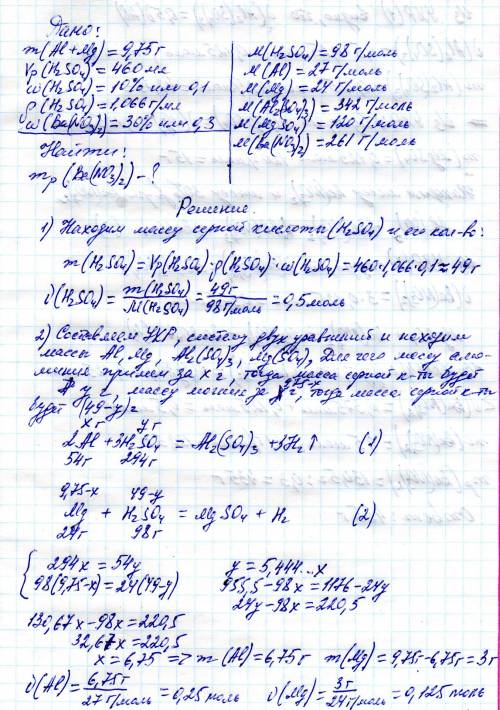 Дано:
m(Al+Mg)=9,75г
Vр(H₂SO₄)=460мл
ω(H₂SO₄)=10% или 0,1
ρ(H₂SO₄)=1,066г/мл
ω(Ba(NO₃)₂)=30% или 0,3
Найти:
mр(Ba(NO₃)₂)-?
M(H₂SO₄)=98г/моль
M(Al)=27г/моль
M(Mg)=24г/моль
M(Al₂(SO₄)₃)=342г/моль
M(MgSO₄)=120г/моль
M(Ba(NO₃)₂)=261г/моль
Решение.
1) Находим массу серной кислоты (H₂SO₄) и его кол-во:
m(H₂SO₄)=Vр(H₂SO₄)·ρ(H₂SO₄)·ω(H₂SO₄)=460·1,066·0,1≈49г
ν(H₂SO₄)=m(H₂SO₄)/M(H₂SO₄)=49г/98г/моль=0,5моль
2) Составляем УХР, систему двух уравнений и находим
массы Al, Mg, Al₂(SO₄)₃, Mg(SO₄), Для чего массу алю-
миния примем за x г, тогда масса серной к-ты будет
y г, массу магния за 9,75-x г, тогда масса серной к-ты
будет (49-y)г
xг yг
2Al+3H₂SO₄=Al₂(SO₄)₃+3H₂↑ (1)
54г 294г
9,75-x 49-y
Mg + H₂SO₄ = MgSO₄ + H₂ (2)
24г 98г
{ 294x=54y y=5,444...x
98(9,75-x)=24(49-y) 955,5-98x=1176-24y
24y-98x=220,5
130,67x-98x=220,5
32,67x=220,5
x=6,75 => m(Al)=6,75г m(Mg)=9,75г-6,75г=3г
ν(Al)=6,75г/27г/моль=0,25моль ν(Mg)=3г/24г/моль=0,125моль